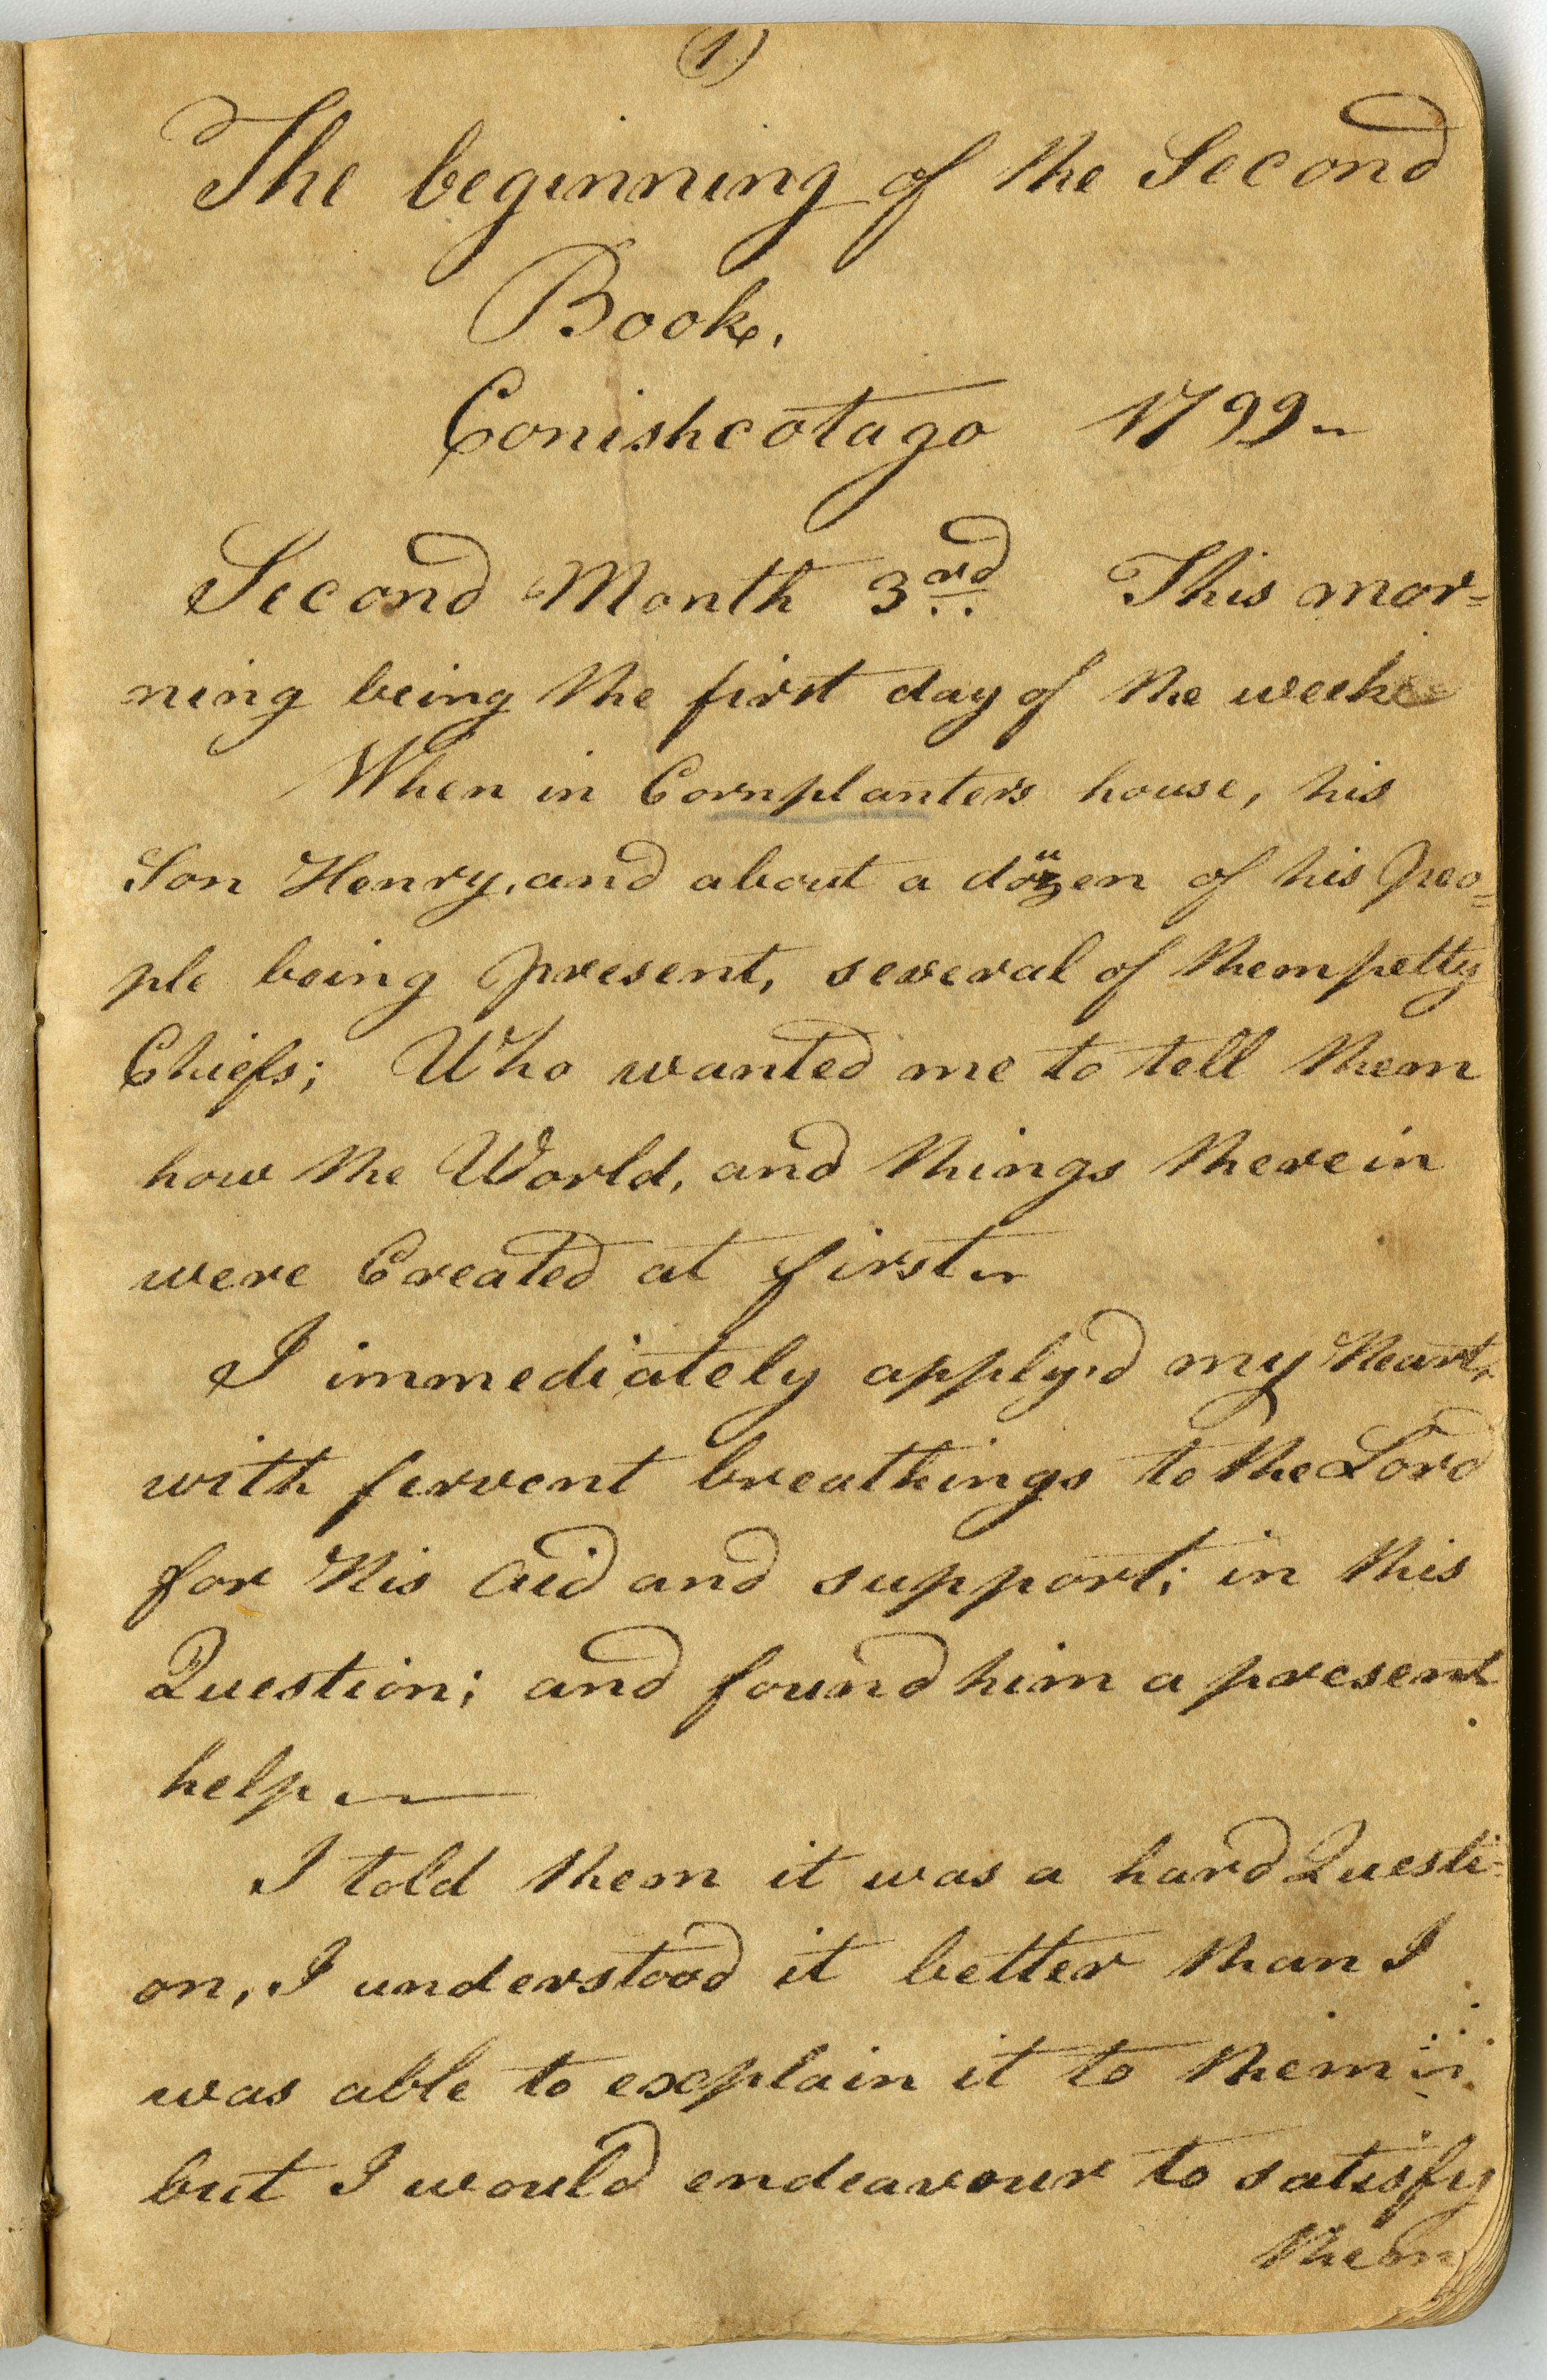 1)
The beginning of the Second
Book.
Conishcotago 1799
Second Month 3rd This mor=
ning being the first day of the week
When in Cornplanters house, his
Son Henry, and about a dozen of his Peo=
ple being present, several of them petty
Chiefs; Who wanted me to tell them
how the World, and things therein
were Created at first
I immediately apply'd my Heart,
with fervent breathings to the Lord
for His Aid and support; in this
Question; and found him a present
help
I told them it was a hard Questi=
on, I understood it better than I
was able to explain it to them
but I would endeavour to satisfy
them